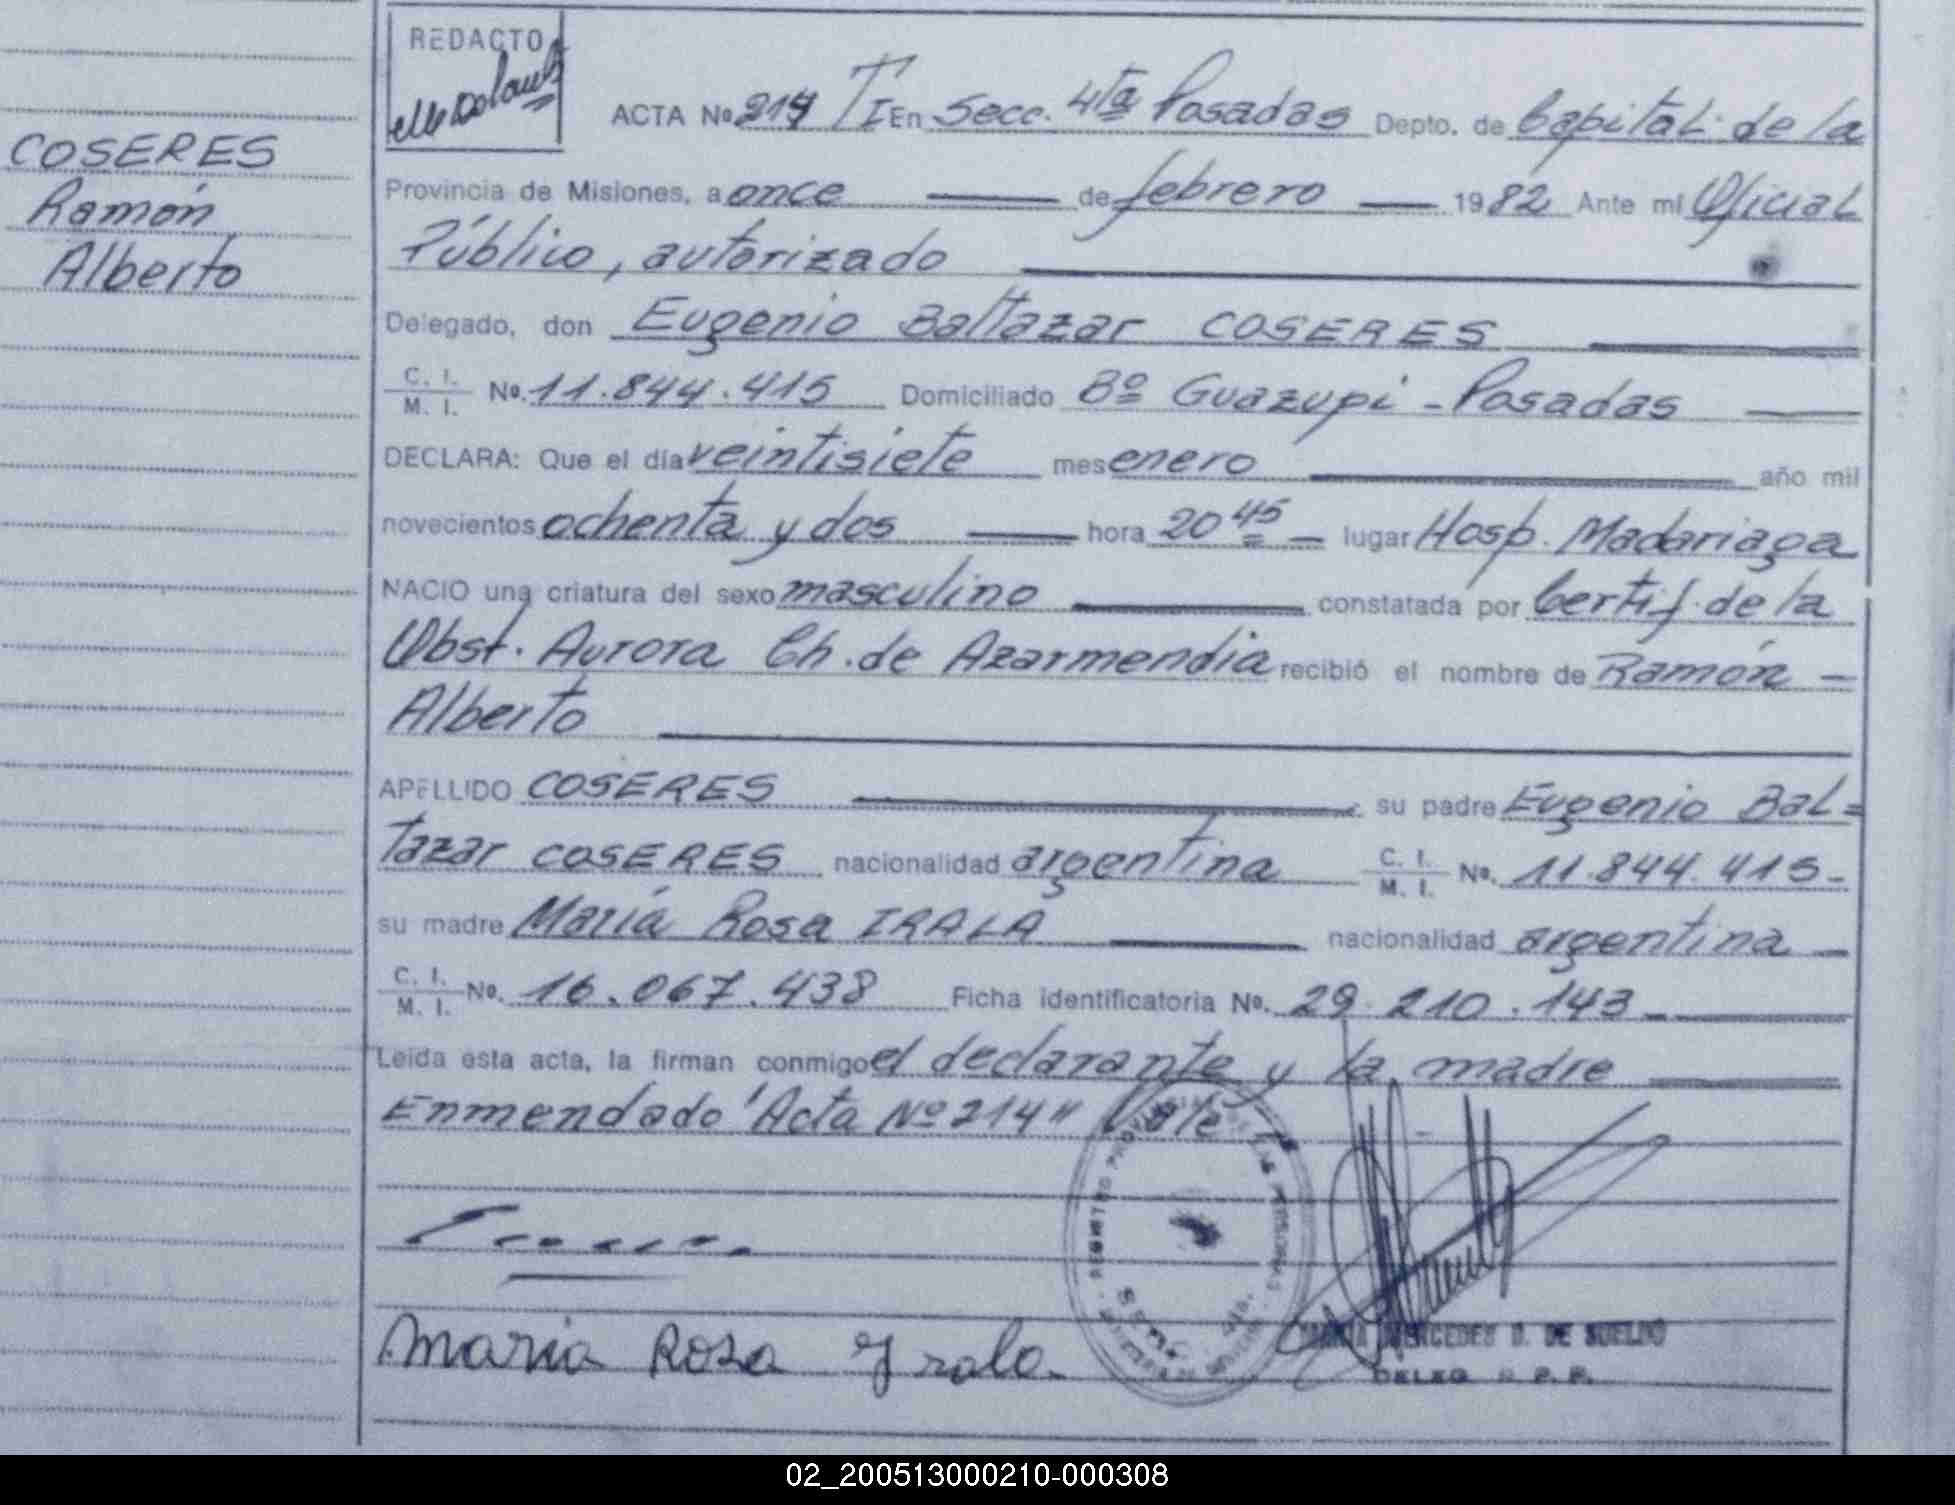 COSERES
Ramón
Alberto
REDACTO
ACTA Nº 214 TI En Secc. 4ta Posadas Depto. de Capital de la
Provincia de Misiones, a once de febrero 1982 Ante mi Oficial
Público, autorizado
Delegado, don Eugenio Baltazar COSERES
C. I. / M. I. Nº. 11.844.415 Domiciliado Bº Guazupi - Posadas
DECLARA: Que el día veintisiete mes enero año mil
novecientos ochenta y dos hora 20 45 lugar Hosp. Madariaga
NACIO una criatura del sexo masculino constatada por Certif. de la
Obst. Aurora Ch. de Azarmendia recibió el nombre de Ramón -
Alberto
APELLIDO COSERES su padre Eugenio Bal=
tazar COSERES nacionalidad argentina C. I. / M. I. Nº. 11.844.415-
su madre María Rosa IRALA nacionalidad argentina
C. I. / M. I. Nº. 16.067.438 Ficha identificatoria Nº. 29.210.143
Leída esta acta, la firman conmigo el declarante y la madre
Enmendado "Acta Nº 214" Vale
Maria Rosa Yrala.
MARIA MERCEDES D. DE SUELDO
DELEG R. P. P.
02_200513000210-000308